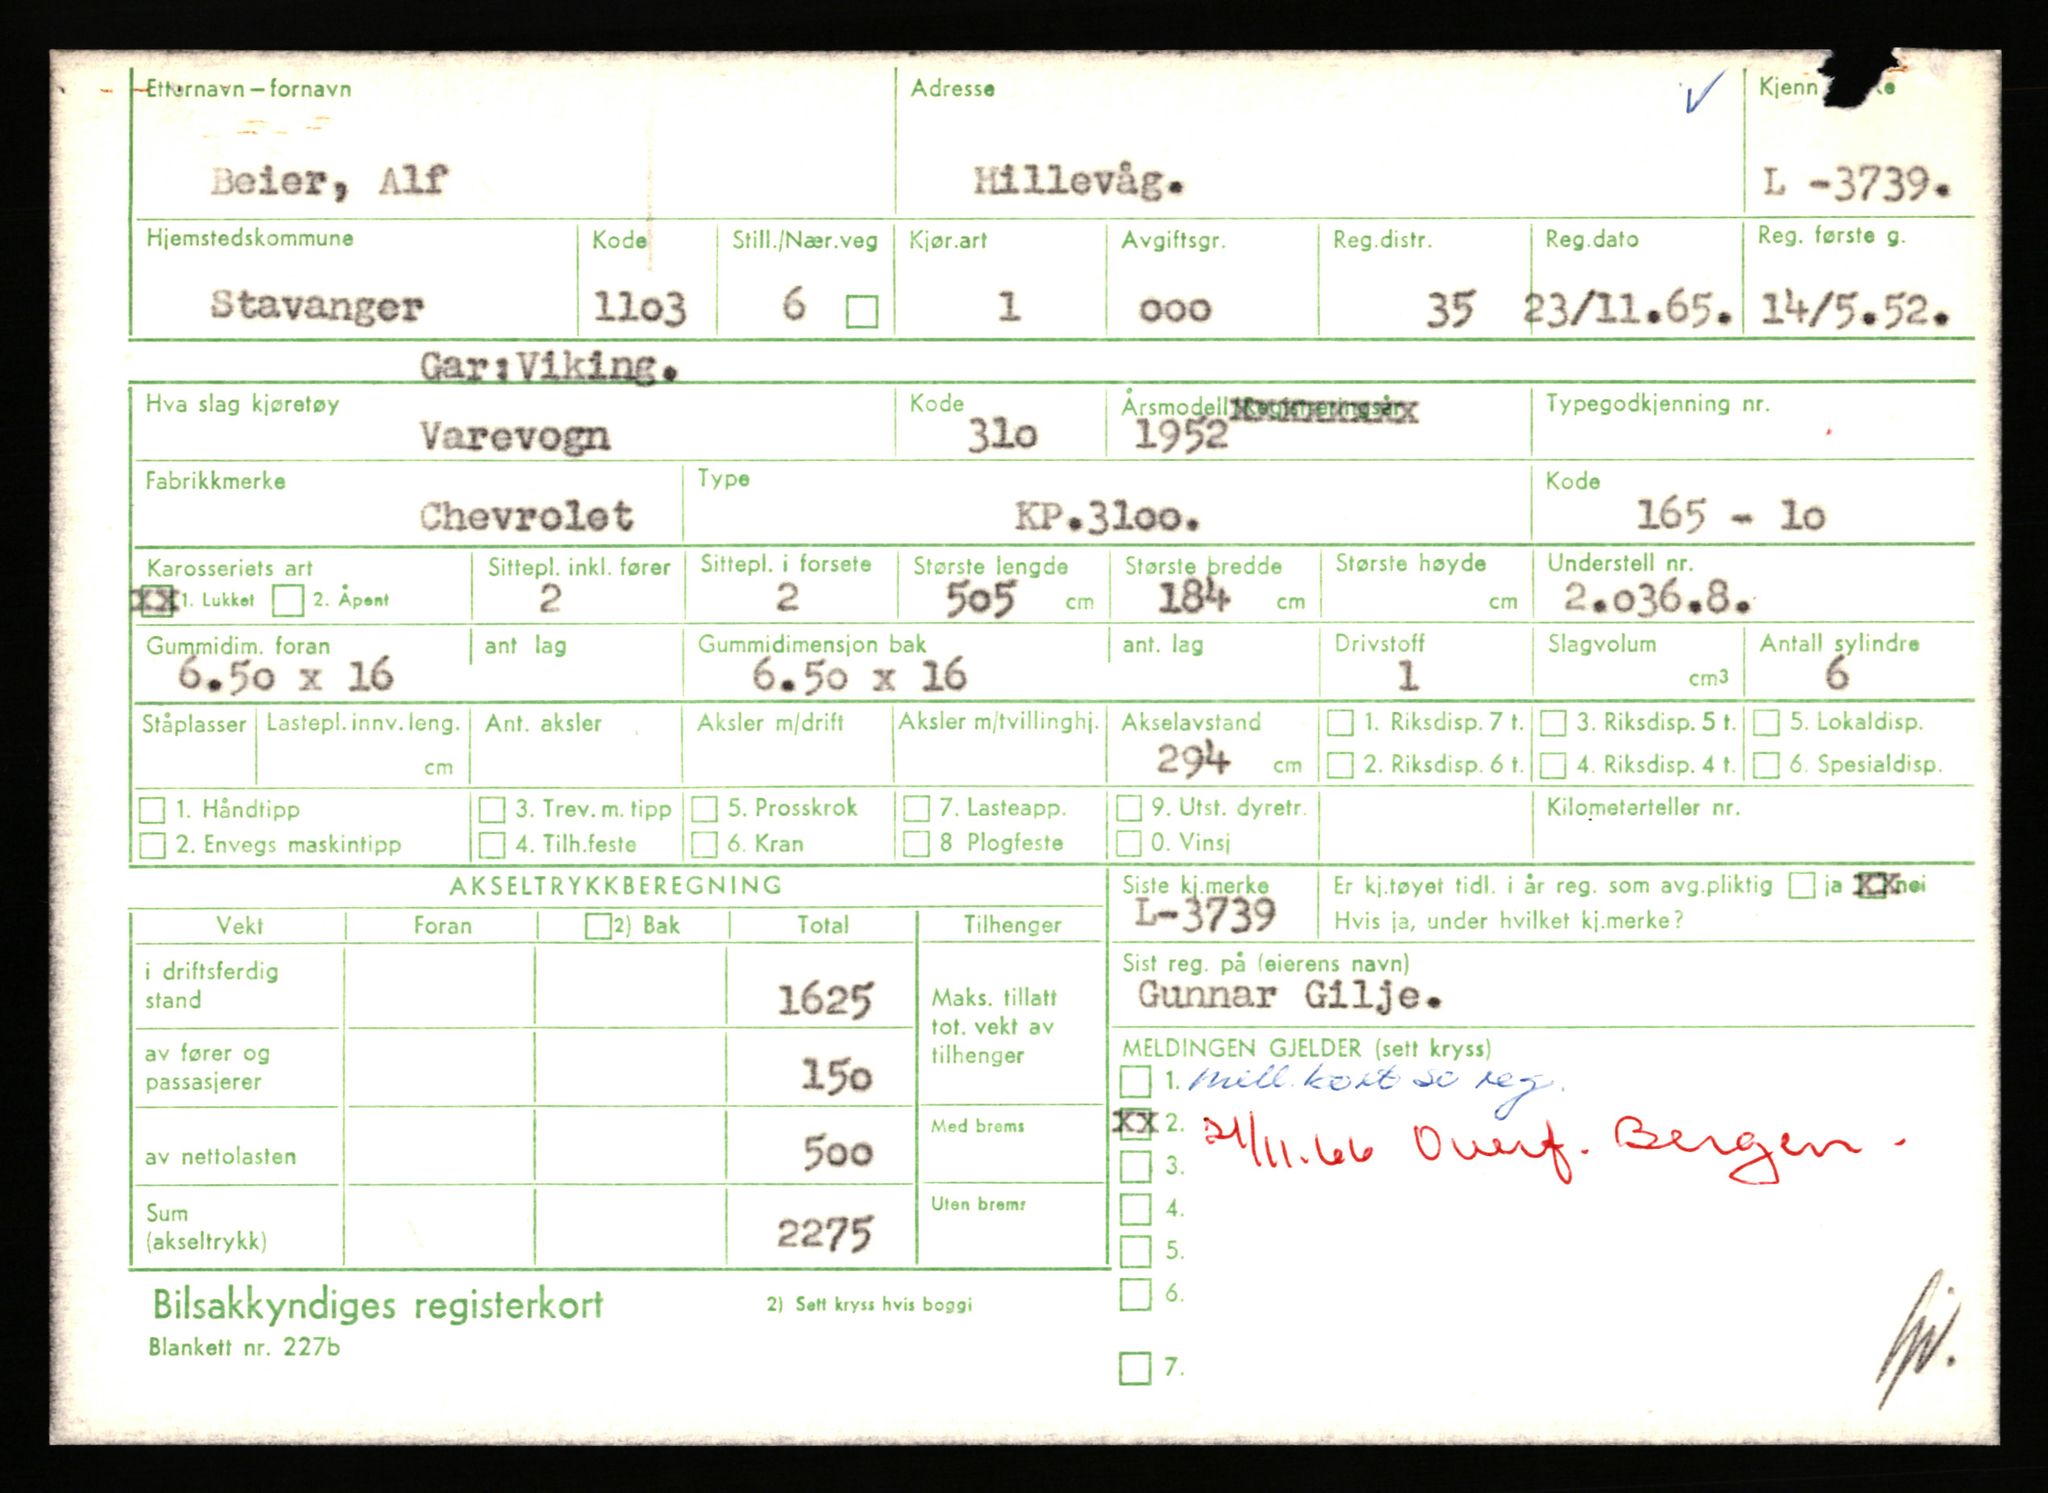 Etternavn – fornavn Adresse Kjenn
Beier, Alf Hillevåg. L -3739.
Hjemstedskommune Kode Still./Nær.veg Kjør.art Avgiftsgr. Reg.distr. Reg.dato Reg. første g.
Stavanger 11o3 6 1 ooo 35 23/11.65. 14/5.52.
Gar:Viking.
Hva slag kjøretøy Kode Årsmodell Registreringsår Typegodkjenning nr.
Varevogn 31o 1952
Fabrikkmerke Type Kode
Chevrolet KP.31oo. 165 - 1o
Karosseriets art Sittepl. inkl. fører Sittepl. i forsete Største lengde Største bredde Største høyde Understell nr.
xx 1. Lukket 2. Åpent 2 2 5o5 cm 184 cm cm 2.o36.8.
Gummidim. foran ant lag Gummidimensjon bak ant. lag Drivstoff Slagvolum Antall sylindre
6.5o x 16 6.5o x 16 1 cm3 6
Ståplasser Lastepl. innv. leng. Ant. aksler Aksler m/drift Aksler m/tvillinghj. Akselavstand 1. Riksdisp. 7 t. 3. Riksdisp. 5 t. 5. Lokaldisp.
cm 294 cm 2. Riksdisp. 6 t. 4. Riksdisp. 4 t. 6. Spesialdisp.
1. Håndtipp 3. Trev. m. tipp 5. Prosskrok 7. Lasteapp. 9. Utst. dyretr. Kilometerteller nr.
2. Envegs maskintipp 4. Tilh.feste 6. Kran 8 Plogfeste 0. Vinsj
AKSELTRYKKBEREGNING Siste kj.merke Er kj.tøyet tidl. i år reg. som avg.pliktig ja xx nei
L-3739 Hvis ja, under hvilket kj.merke?
Vekt Foran 2) Bak Total Tilhenger
Sist reg. på (eierens navn)
i driftsferdig
stand 1625 Gunnar Gilje.
Maks. tillatt
tot. vekt av
tilhenger
av fører og
passasjerer 15o
MELDINGEN GJELDER (sett kryss)
1. mell. kort so reg.
xx 2. 21/11.66 Overf. Bergen.
Med brems
av nettolasten 5oo
3.
Uten brems
4.
Sum
(akseltrykk) 2275
5.
6.
Bilsakkyndiges registerkort 2) Sett kryss hvis boggi
Blankett nr. 227b
7.